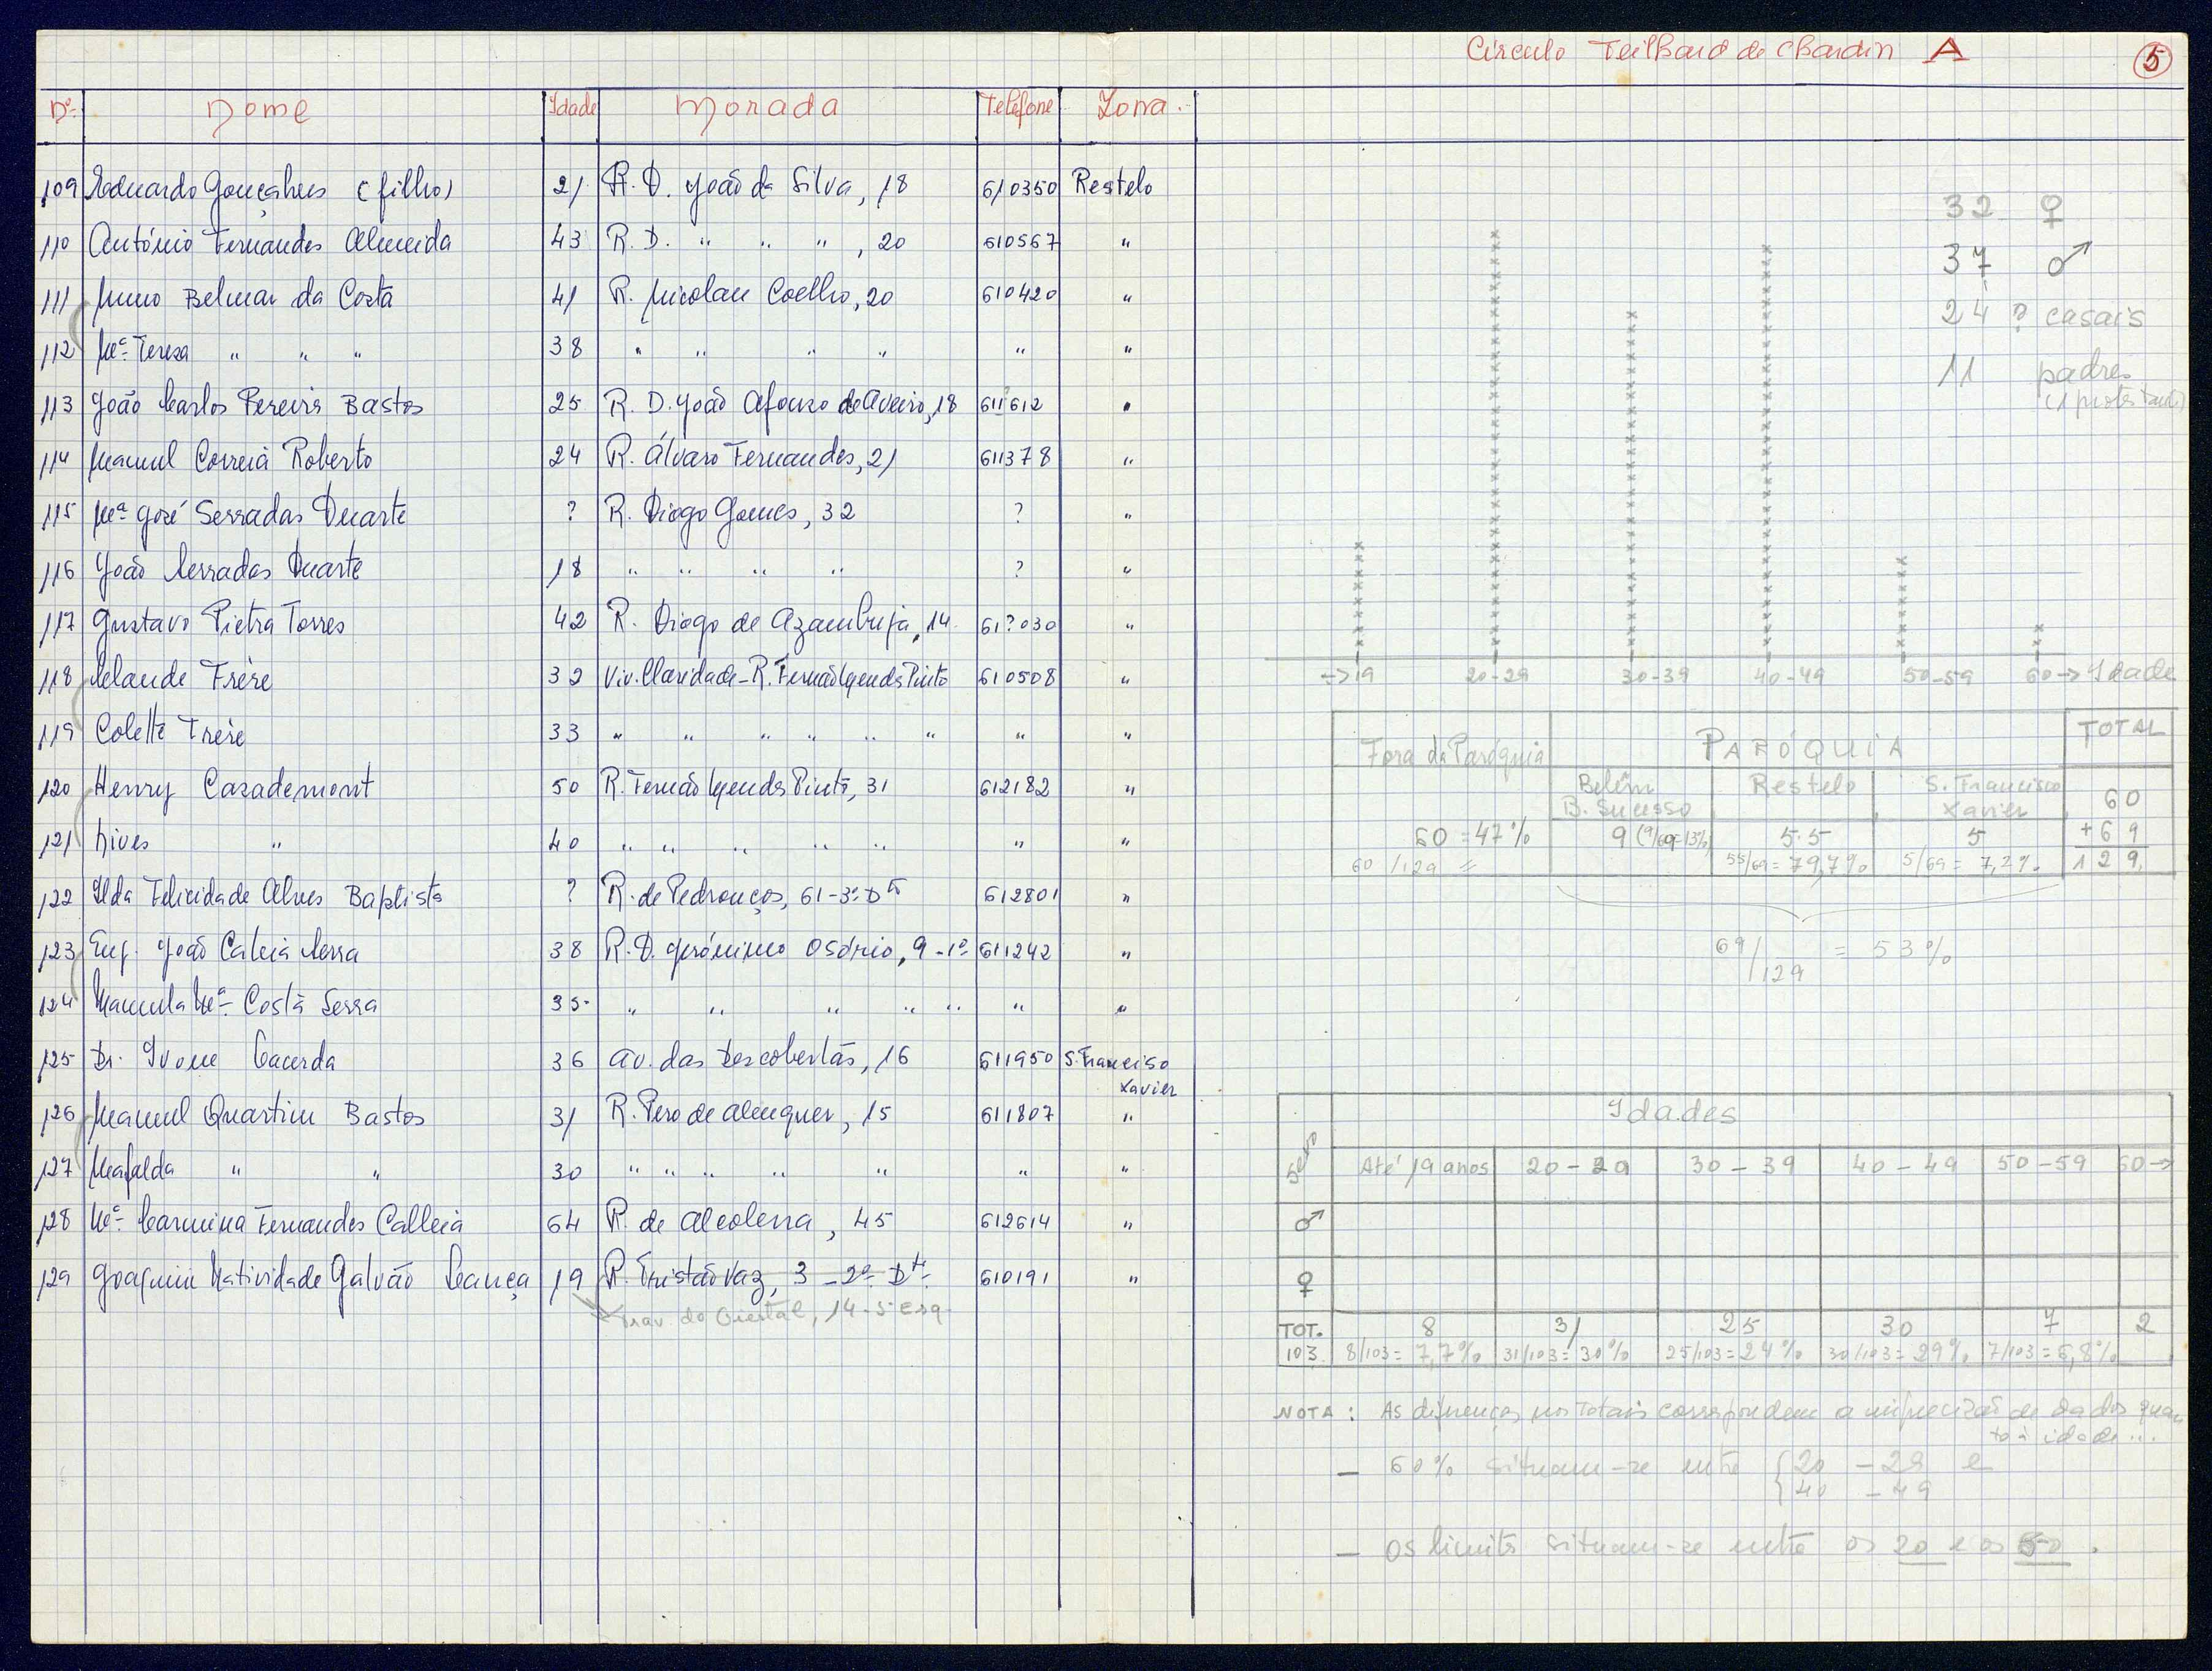 Círculo Teilhard de Chardin A 5
Nº Nome Idade Morada Telefone Zona
109 Eduardo Gonçalves (filho) 21 R. D. João da Silva, 18 610350 Restelo
110 António Fernandes Almeida 43 R. D. " " " , 20 610567 "
111 Nuno Belmar da Costa 41 R. Nicolau Coelho, 20 610420 "
112 Mª Teresa " " " 38 " " " " " "
113 João Carlos Pereira Bastos 25 R. D. João Afonso de Aveiro, 18 611?612 "
114 Manuel Correia Roberto 24 R. Álvaro Fernandes, 21 611378 "
115 Mª José Serradas Duarte ? R. Diogo Gomes, 32 ? "
116 João Serradas Duarte 18 " " " " ? "
117 Gustavo Pietra Torres 42 R. Diogo de Azambuja, 14 61?030 "
118 Claude Frère 32 Viv. Claridade - R. Fernão Mendes Pinto 610508 "
119 Colette Frère 33 " " " " " " " "
120 Henry Casademont 50 R. Fernão Mendes Pinto, 31 612182 "
121 Nives " 40 " " " " " " "
122 Ilda Felicidade Alves Baptista ? R. de Pedrouços, 61-3º Dtº 612801 "
123 Eng. João Caleia Serra 38 R. D. Jerónimo Osório, 9-1º 611242 "
124 Manuela Mª Costa Serra 35 " " " " " " "
125 Dr. Ivone Lacerda 36 Av. das Descobertas, 16 611950 S. Francisco Xavier
126 Manuel Quartin Bastos 31 R. Pero de Alenquer, 15 611807 "
127 Mafalda " " 30 " " " " " " "
128 Mª Carmina Fernandes Calleia 64 R. de Alcolena, 45 612614 "
129 Joaquim Natividade Galvão Lança 19 R. Tristão Vaz, 3-2º Dtº 610191 "
Trav. do Oriental, 14-5 Esq.
32 ♀
37 ♂
24 ? casais
11 padres
(1 protestante)
→19 20-29 30-39 40-49 50-59 60→ Idade
Fora da Paróquia PARÓQUIA TOTAL
Belém B. Sucesso Restelo S. Francisco Xavier 60
60 = 47% 9 (9/69=13%) 55 5 +69
60/129 = 55/69 = 79,7% 5/69 = 7,2% 129
69/129 = 53%
Idades
Sexo Até 19 anos 20-29 30-39 40-49 50-59 60→
♂
♀
TOT. 8 31 25 30 7 2
103 8/103 = 7,7% 31/103 = 30% 25/103 = 24% 30/103 = 29% 7/103 = 6,8%
NOTA: As diferenças nos Totais correspondem a imprecisão de dados quan
to à idade...
- 60% situam-se entre {20 - 29 e
40 - 49
- Os limites situam-se entre os 20 e os 50.